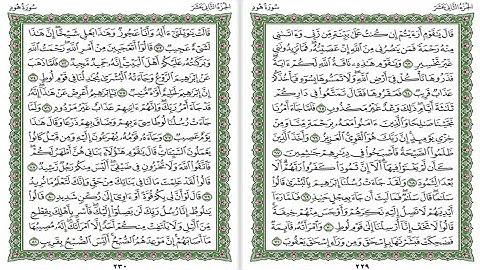 الجزء الثاني عشر
سورة هود
قَالَ يَٰقَوْمِ أَرَءَيْتُمْ إِن كُنتُ عَلَىٰ بَيِّنَةٍ مِّن رَّبِّي وَءَاتَىٰنِي
مِنْهُ رَحْمَةً فَمَن يَنصُرُنِي مِنَ ٱللَّهِ إِنْ عَصَيْتُهُۥ فَمَا تَزِيدُونَنِي
غَيْرَ تَخْسِيرٍ ٦٣ وَيَٰقَوْمِ هَٰذِهِۦ نَاقَةُ ٱللَّهِ لَكُمْ ءَايَةً
فَذَرُوهَا تَأْكُلْ فِيٓ أَرْضِ ٱللَّهِ وَلَا تَمَسُّوهَا بِسُوٓءٍ فَيَأْخُذَكُمْ
عَذَابٌ قَرِيبٌ ٦٤ فَعَقَرُوهَا فَقَالَ تَمَتَّعُوا۟ فِي دَارِكُمْ
ثَلَٰثَةَ أَيَّامٍ ذَٰلِكَ وَعْدٌ غَيْرُ مَكْذُوبٍ ٦٥ فَلَمَّا جَآءَ أَمْرُنَا
نَجَّيْنَا صَٰلِحًا وَٱلَّذِينَ ءَامَنُوا۟ مَعَهُۥ بِرَحْمَةٍ مِّنَّا وَمِنْ
خِزْيِ يَوْمِئِذٍ إِنَّ رَبَّكَ هُوَ ٱلْقَوِيُّ ٱلْعَزِيزُ ٦٦ وَأَخَذَ ٱلَّذِينَ
ظَلَمُوا۟ ٱلصَّيْحَةُ فَأَصْبَحُوا۟ فِي دِيَٰرِهِمْ جَٰثِمِينَ ٦٧
كَأَن لَّمْ يَغْنَوْا۟ فِيهَآ أَلَآ إِنَّ ثَمُودَا۟ كَفَرُوا۟ رَبَّهُمْ أَلَا
بُعْدًا لِّثَمُودَ ٦٨ وَلَقَدْ جَآءَتْ رُسُلُنَآ إِبْرَٰهِيمَ بِٱلْبُشْرَىٰ قَالُوا۟
سَلَٰمًا قَالَ سَلَٰمٌ فَمَا لَبِثَ أَن جَآءَ بِعِجْلٍ حَنِيذٍ ٦٩ فَلَمَّا رَءَآ
أَيْدِيَهُمْ لَا تَصِلُ إِلَيْهِ نَكِرَهُمْ وَأَوْجَسَ مِنْهُمْ خِيفَةً
قَالُوا۟ لَا تَخَفْ إِنَّآ أُرْسِلْنَآ إِلَىٰ قَوْمِ لُوطٍ ٧٠ وَٱمْرَأَتُهُۥ قَآئِمَةٌ
فَضَحِكَتْ فَبَشَّرْنَٰهَا بِإِسْحَٰقَ وَمِن وَرَآءِ إِسْحَٰقَ يَعْقُوبَ ٧١
٢٢٩
الجزء الثاني عشر
سورة هود
قَالَتْ يَٰوَيْلَتَىٰٓ ءَأَلِدُ وَأَنَا۠ عَجُوزٌ وَهَٰذَا بَعْلِي شَيْخًا إِنَّ هَٰذَا
لَشَيْءٌ عَجِيبٌ ٧٢ قَالُوٓا۟ أَتَعْجَبِينَ مِنْ أَمْرِ ٱللَّهِ رَحْمَتُ ٱللَّهِ
وَبَرَكَٰتُهُۥ عَلَيْكُمْ أَهْلَ ٱلْبَيْتِ إِنَّهُۥ حَمِيدٌ مَّجِيدٌ ٧٣ فَلَمَّا ذَهَبَ
عَنْ إِبْرَٰهِيمَ ٱلرَّوْعُ وَجَآءَتْهُ ٱلْبُشْرَىٰ يُجَٰدِلُنَا فِي قَوْمِ لُوطٍ ٧٤
إِنَّ إِبْرَٰهِيمَ لَحَلِيمٌ أَوَّٰهٌ مُّنِيبٌ ٧٥ يَٰٓإِبْرَٰهِيمُ أَعْرِضْ عَنْ هَٰذَآ إِنَّهُۥ
قَدْ جَآءَ أَمْرُ رَبِّكَ وَإِنَّهُمْ ءَاتِيهِمْ عَذَابٌ غَيْرُ مَرْدُودٍ ٧٦ وَلَمَّا
جَآءَتْ رُسُلُنَا لُوطًا سِيٓءَ بِهِمْ وَضَاقَ بِهِمْ ذَرْعًا وَقَالَ هَٰذَا
يَوْمٌ عَصِيبٌ ٧٧ وَجَآءَهُۥ قَوْمُهُۥ يُهْرَعُونَ إِلَيْهِ وَمِن قَبْلُ كَانُوا۟
يَعْمَلُونَ ٱلسَّيِّـَٔاتِ قَالَ يَٰقَوْمِ هَٰٓؤُلَآءِ بَنَاتِي هُنَّ أَطْهَرُ لَكُمْ
فَٱتَّقُوا۟ ٱللَّهَ وَلَا تُخْزُونِ فِي ضَيْفِيٓ أَلَيْسَ مِنكُمْ رَجُلٌ رَّشِيدٌ ٧٨
قَالُوا۟ لَقَدْ عَلِمْتَ مَا لَنَا فِي بَنَاتِكَ مِنْ حَقٍّ وَإِنَّكَ لَتَعْلَمُ مَا نُرِيدُ ٧٩
قَالَ لَوْ أَنَّ لِي بِكُمْ قُوَّةً أَوْ ءَاوِيٓ إِلَىٰ رُكْنٍ شَدِيدٍ ٨٠ قَالُوا۟
يَٰلُوطُ إِنَّا رُسُلُ رَبِّكَ لَن يَصِلُوٓا۟ إِلَيْكَ فَأَسْرِ بِأَهْلِكَ بِقِطْعٍ
مِّنَ ٱلَّيْلِ وَلَا يَلْتَفِتْ مِنكُمْ أَحَدٌ إِلَّا ٱمْرَأَتَكَ إِنَّهُۥ مُصِيبُهَا
مَآ أَصَابَهُمْ إِنَّ مَوْعِدَهُمُ ٱلصُّبْحُ أَلَيْسَ ٱلصُّبْحُ بِقَرِيبٍ ٨١
٢٣٠